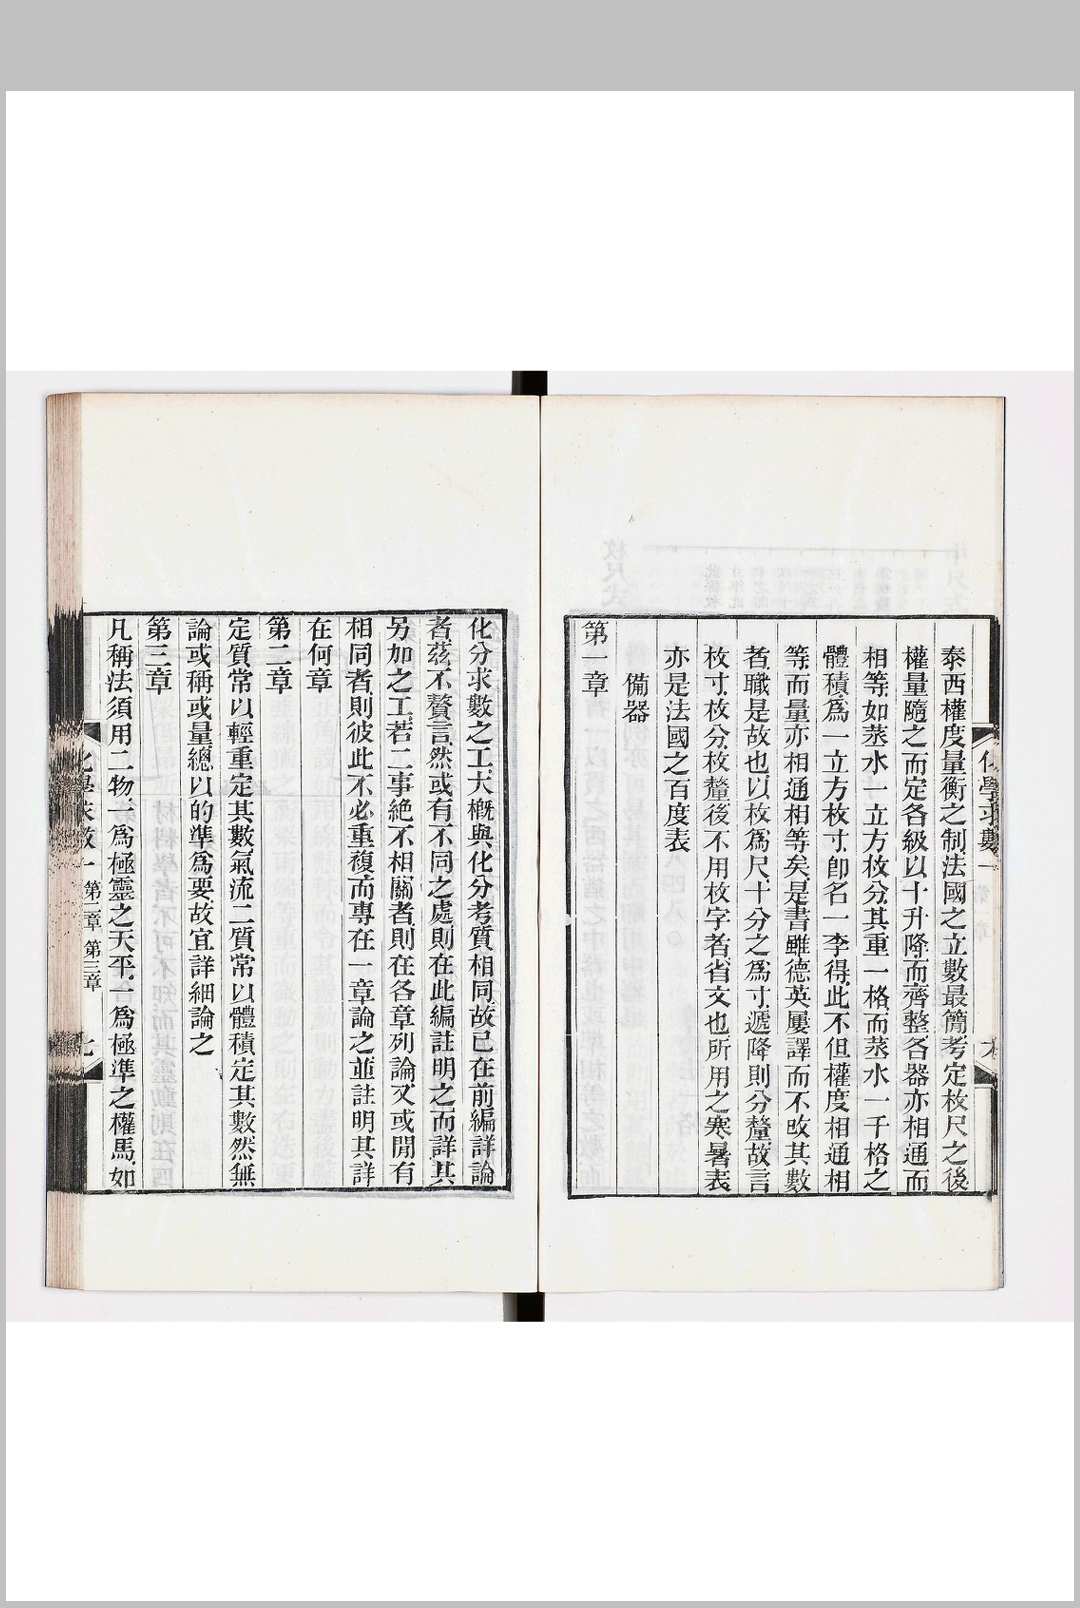 化學求數一
泰西權度量衡之制法國之立數最簡考定枚尺之後
權量隨之而定各級以十升降而齊整各器亦相通而
相等如蒸水一立方枚分其重一格而蒸水一千格之
體積爲一立方枚寸卽名一李得此不但權度相通相
等而量亦相通相等矣是書雖德英屢譯而不改其數
者職是故也以枚爲尺十分之爲寸遞降則分釐故言
枚寸枚分枚釐後不用枚字者省文也所用之寒暑表
亦是法國之百度表
備器
第一章
化分求數之工大概與化分考質相同故已在前編詳論
者茲不贅言然或有不同之處則在此編註明之而詳其
另加之工若二事絶不相關者則在各章列論又或閒有
相同者則彼此不必重複而專在一章論之並註明其詳
在何章
第二章
定質常以輕重定其數氣流二質常以體積定其數然無
論或稱或量總以的準爲要故宜詳細論之
第三章
凡稱法須用二物一爲極靈之天平一爲極準之權馬如
化學求數一
第二章 第三章
七